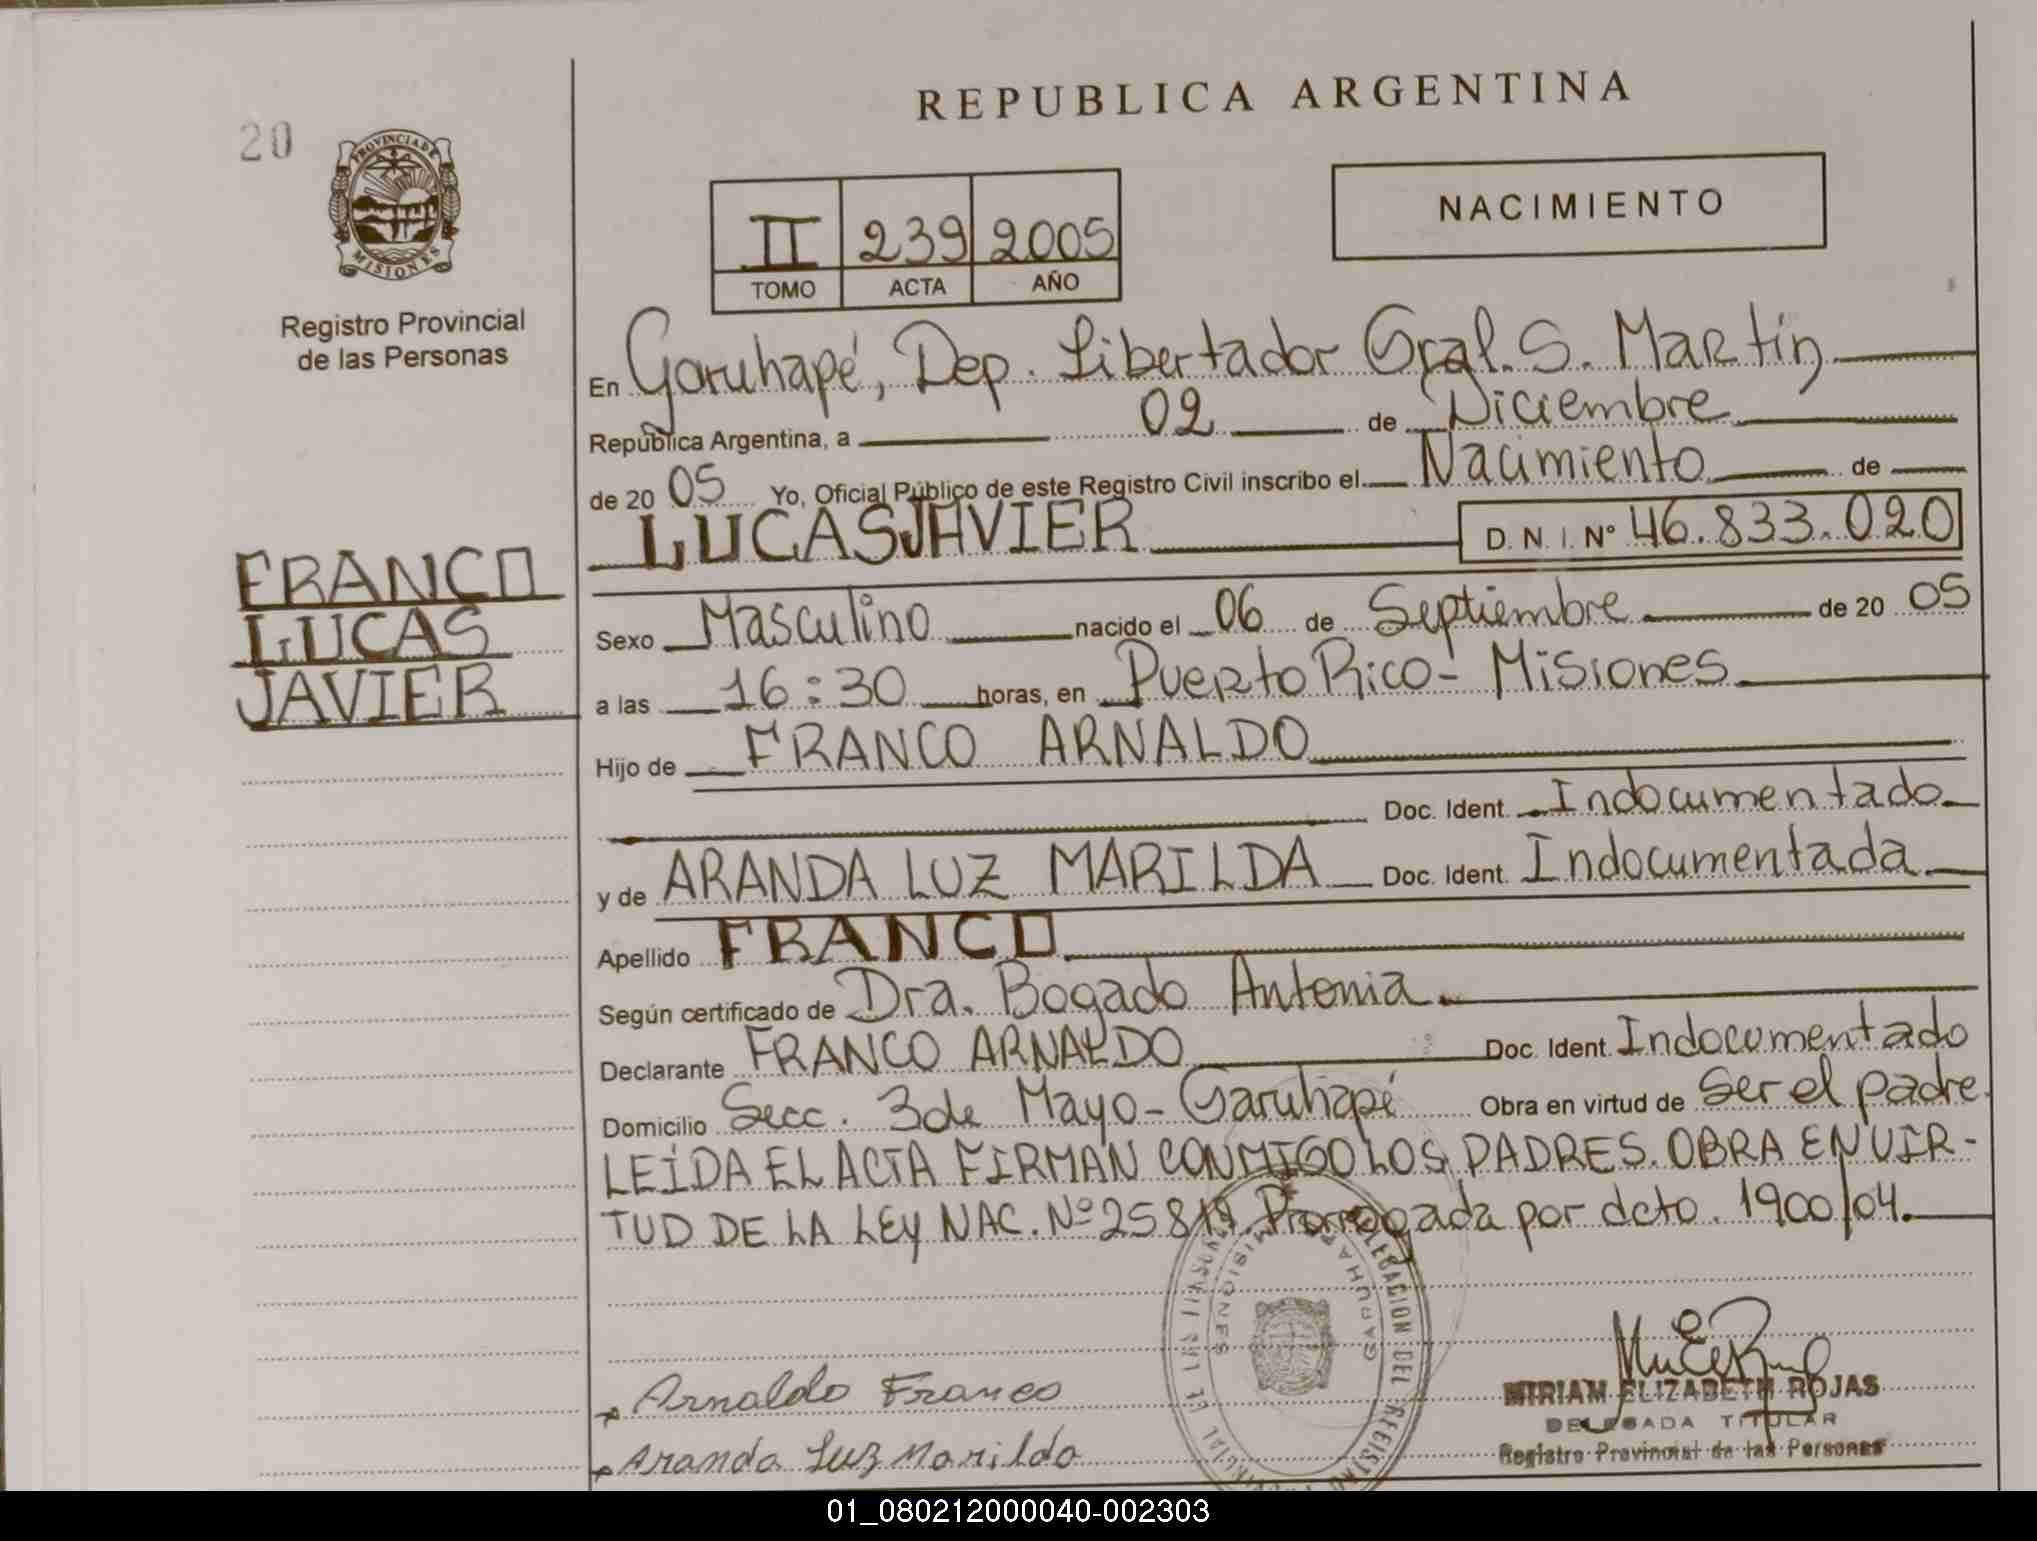 REPUBLICA ARGENTINA
20
PROVINCIA DE MISIONES
NACIMIENTO
II 239 2005
TOMO ACTA AÑO
Registro Provincial
de las Personas
En Garuhapé, Dep. Libertador Gral. S. Martín
República Argentina, a 02 de Diciembre
de 20 05 Yo, Oficial Público de este Registro Civil inscribo el Nacimiento de
LUCAS JAVIER D. N. I. N° 46.833.020
FRANCO
LUCAS
JAVIER
Sexo Masculino nacido el 06 de Septiembre de 20 05
a las 16:30 horas, en Puerto Rico - Misiones
Hijo de FRANCO ARNALDO
Doc. Ident. Indocumentado
y de ARANDA LUZ MARILDA Doc. Ident. Indocumentada
Apellido FRANCO
Según certificado de Dra. Bogado Antonia.
Declarante FRANCO ARNALDO Doc. Ident. Indocumentado
Domicilio Secc. 3 de Mayo - Garuhapé Obra en virtud de Ser el padre.
LEÍDA EL ACTA FIRMAN CONMIGO LOS PADRES. OBRA EN VIR-
TUD DE LA LEY NAC. Nº 25819. Prorrogada por dcto. 1900/04.
DELEGACION DEL REGISTRO
GARUHAPE
MISIONES
Arnaldo Franco
Aranda Luz Marilda
MIRIAM ELIZABETH ROJAS
DELEGADA TITULAR
Registro Provincial de las Personas
01_080212000040-002303